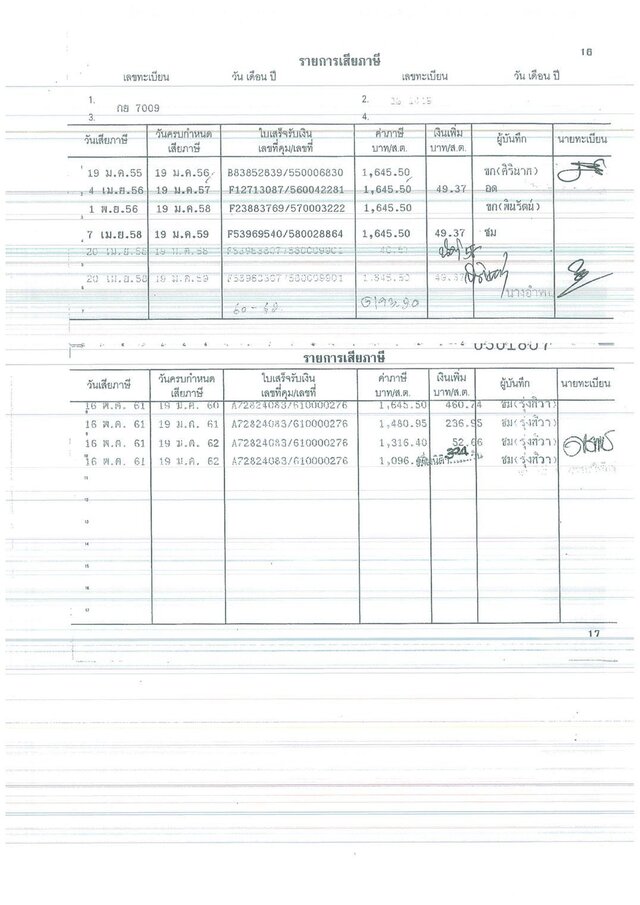 16
รายการเสียภาษี
เลขทะเบียน วัน เดือน ปี เลขทะเบียน วัน เดือน ปี
1. กย 7009 2.
3. 4.
วันเสียภาษี วันครบกำหนดเสียภาษี ใบเสร็จรับเงินเลขที่คุม/เลขที่ ค่าภาษีบาท/ส.ต. เงินเพิ่มบาท/ส.ต. ผู้บันทึก นายทะเบียน
19 ม.ค.55 19 ม.ค.56 B83852839/550006830 1,645.50 ขก(ศิรินาถ)
4 เม.ย.56 19 ม.ค.57 F12713087/560042281 1,645.50 49.37 อด
1 พ.ย.56 19 ม.ค.58 F23883769/570003222 1,645.50 ขก(พินรัตน์)
7 เม.ย.58 19 ม.ค.59 F53969540/580028864 1,645.50 49.37 ชม
20 เม.ย.58 19 ม.ค.58
20 เม.ย.58 19 ม.ค.59 1,645.50 49.37
รายการเสียภาษี
วันเสียภาษี วันครบกำหนดเสียภาษี ใบเสร็จรับเงินเลขที่คุม/เลขที่ ค่าภาษีบาท/ส.ต. เงินเพิ่มบาท/ส.ต. ผู้บันทึก นายทะเบียน
16 พ.ค. 61 19 ม.ค. 60 A72824083/610000276 1,645.50 460.74 ชม(รุ่งทิวา)
16 พ.ค. 61 19 ม.ค. 61 A72824083/610000276 1,480.95 236.95 ชม(รุ่งทิวา)
16 พ.ค. 61 19 ม.ค. 62 A72824083/610000276 1,316.40 52.66 ชม(รุ่งทิวา)
16 พ.ค. 61 19 ม.ค. 62 A72824083/610000276 1,096. 324 ชม(รุ่งทิวา)
11
12
13
14
15
16
17
17